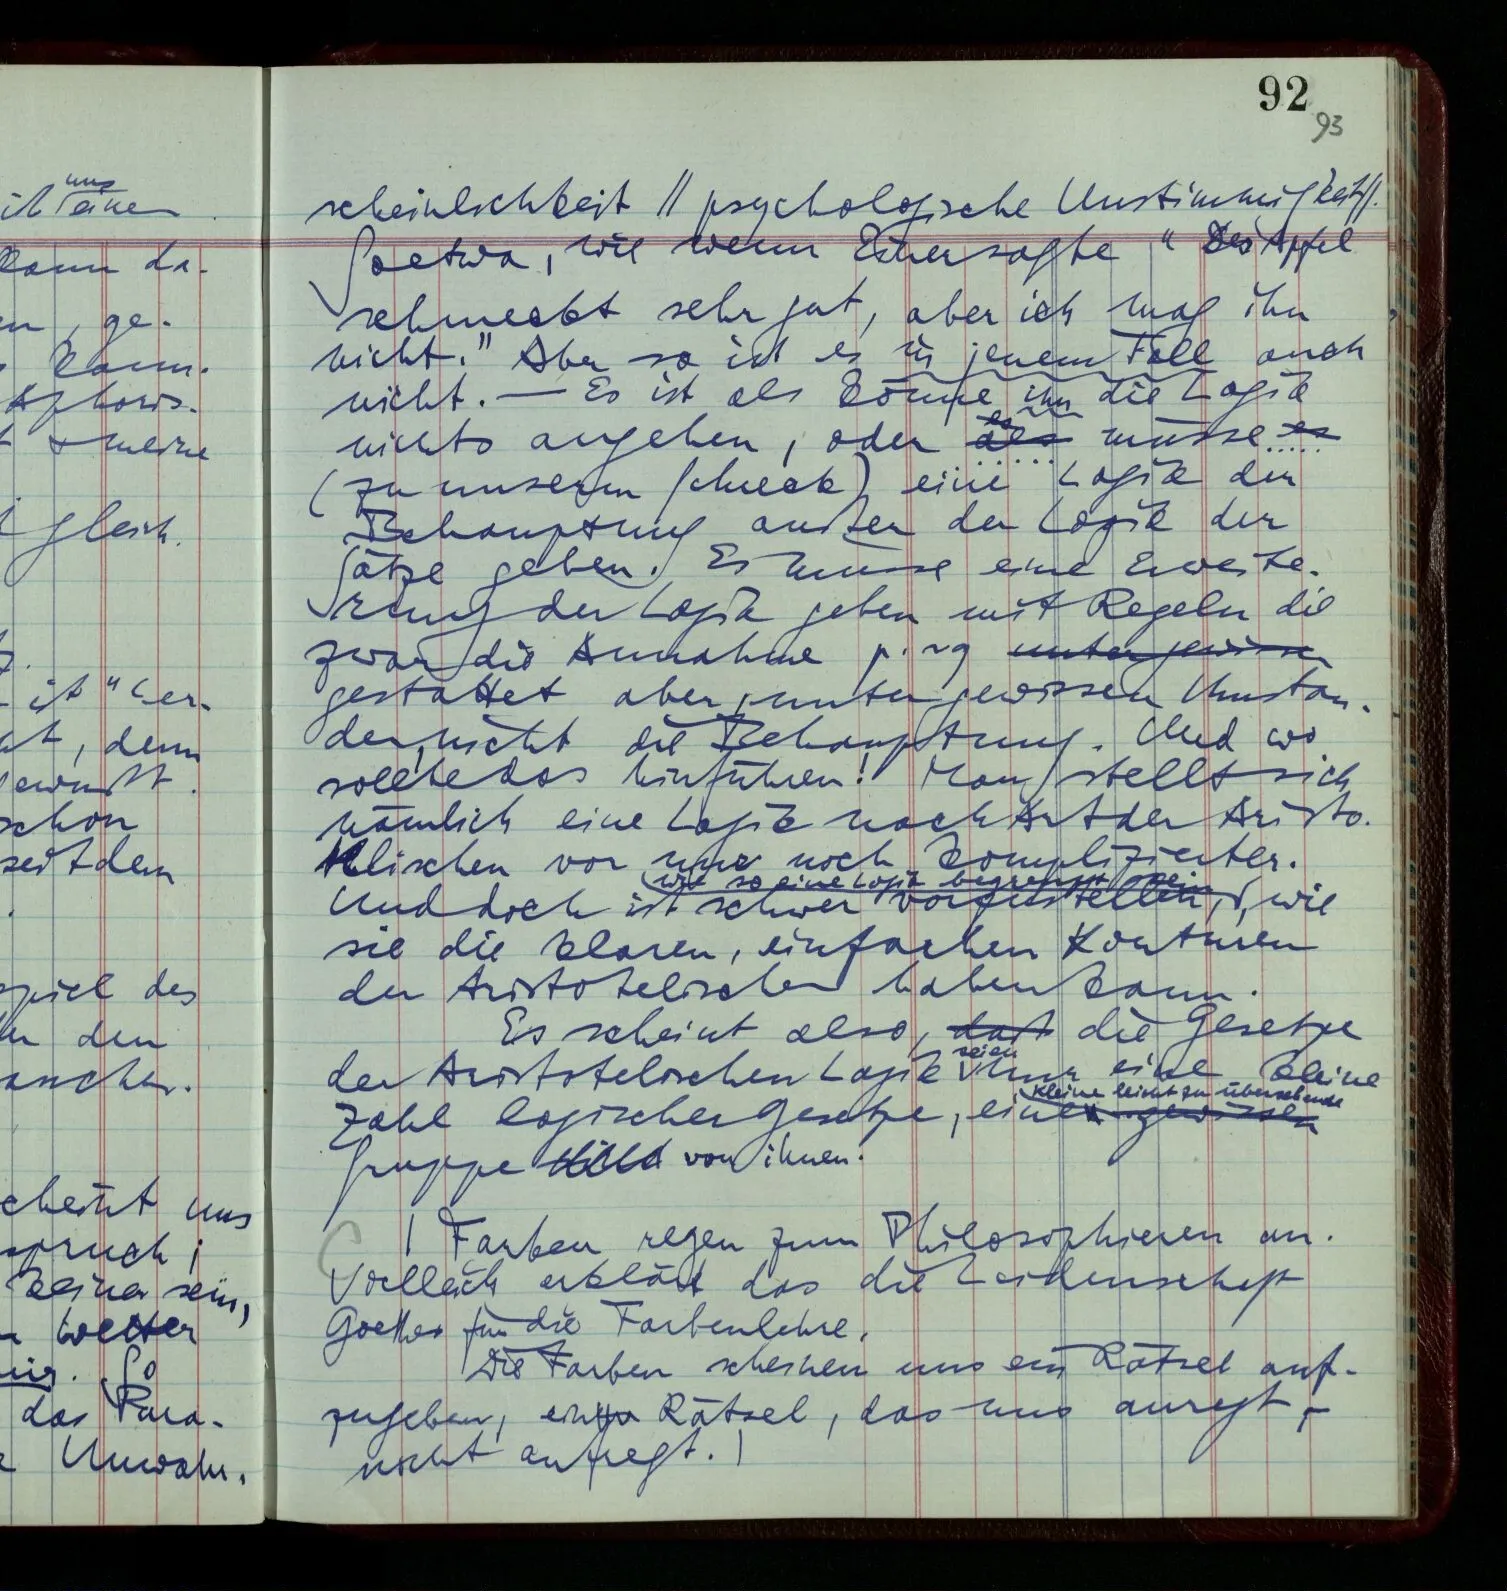 92
93
uns
eine
kann da-
en, ge-
kann.
Aphoris-
meine
gleich.
ist" ver-
, denn
gewußt.
schon
seitdem
spiel des
den
scheint uns
spruch;
keiner sein,
weiter
So
das Para-
Unwahr-
scheinlichkeit // psychologische Unstimmigkeit//.
So etwa, wie wenn Einer sagte "Der Apfel
schmeckt sehr gut, aber ich mag ihn
nicht." Aber so ist es in jenem Fall auch
nicht. — Es ist als könne ihn die Logik
es
nichts angehen, oder als müsse es
(zu unserem Schreck) eine Logik der
Behauptung außer der Logik der
Sätze geben. Es müsse eine Erweite-
rung der Logik geben mit Regeln die
zwar die Annahme p. ~q unter gewissen
gestattet aber, unter gewissen Umstän-
den, nicht die Behauptung. Und wo
sollte das hinführen! Man stellt sich
nämlich eine Logik nach Art der Aristo-
telischen vor nur noch komplizierter.
wie so eine Logik begrenzt sein
Und doch ist schwer vorzustellen, wie
sie die klaren, einfachen Konturen
der Aristotelischen haben kann.
Es scheint also, daß die Gesetze
seien
der Aristotelischen Logik nur eine kleine
kleine leicht zu übersehende
Zahl logischer Gesetze, eine gewissen
Gruppe von ihnen.
| Farben regen zum Philosophieren an.
Vielleicht erklärt das die Leidenschaft
Goethes für die Farbenlehre.
Die Farben scheinen uns ein Rätsel auf-
zugeben, ein Rätsel, das uns anregt, –
nicht aufregt. |